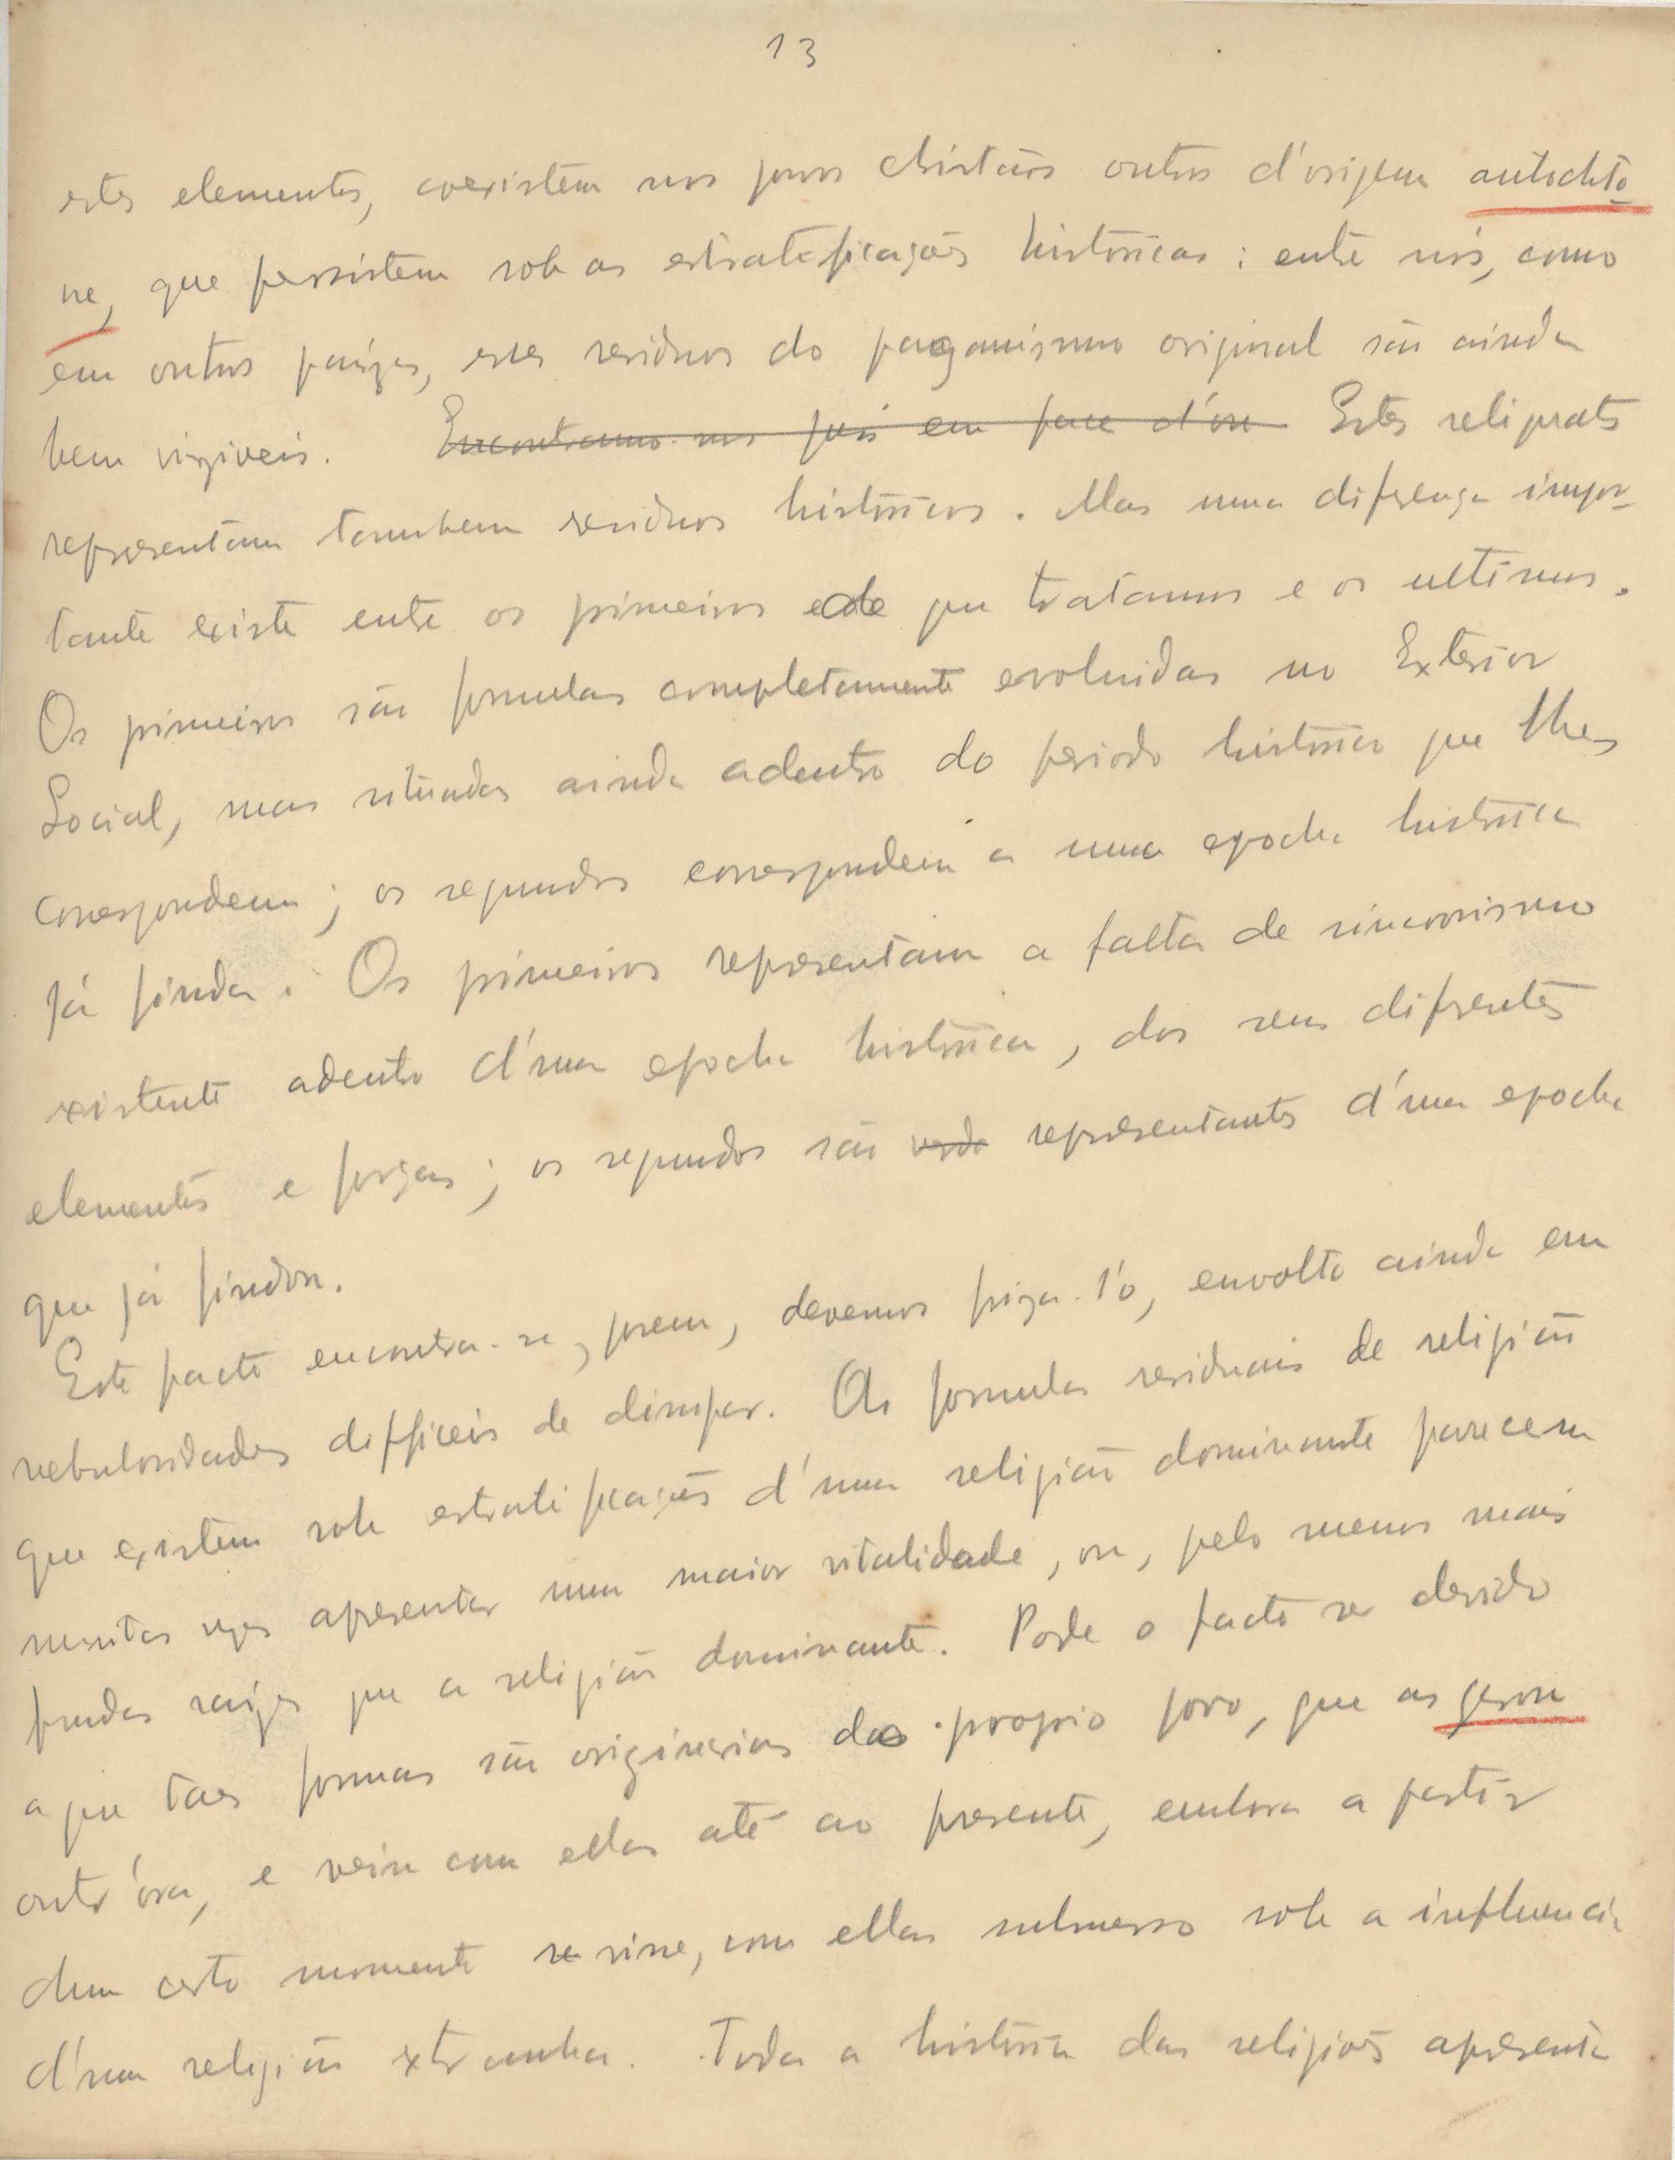 13
estes elementos, coexistem nos povos christãos outros d'origem autochto
ne, que persistem sob as estratificações históricas: entre nós, como
em outros paizes, esses residuos do paganismo original são ainda
bem vizíveis. Encontramo-nos pois em face d'ou Estes religiosos
representam tambem residuos históricos. Mas uma diferença impor-
tante existe entre os primeiros de que tratamos e os ultimos.
Os primeiros são formulas completamente evoluidas no Exterior
Social, mas situadas ainda adentro do periodo histórico que lhes
correspondem; os segundos correspondem a uma epocha histórica
já finda. Os primeiros representam a falta de sincronismo
existente adentro d'uma epocha histórica, dos seus diferentes
elementos e forças; os segundos são representantes d'uma epocha
que já findou.
Este facto encontra-se, porem, devemos friza-l'o, envolto ainda em
nebulosidades difficeis de dissipar. As formulas residuais de religião
que existem sob estratificações d'uma religião dominante parecem
muitas vezes apresentar uma maior vitalidade, ou, pelo menos mais
fundas raizes que a religião dominante. Pode o facto ser devido
a que taes formas são originarias do proprio povo, que as gerou
outr'ora, e veiu com ellas até ao presente, embora a partir
dum certo momento se visse, com ellas submerso sob a influencia
d'uma religião extranha. Toda a história das religiões apresenta